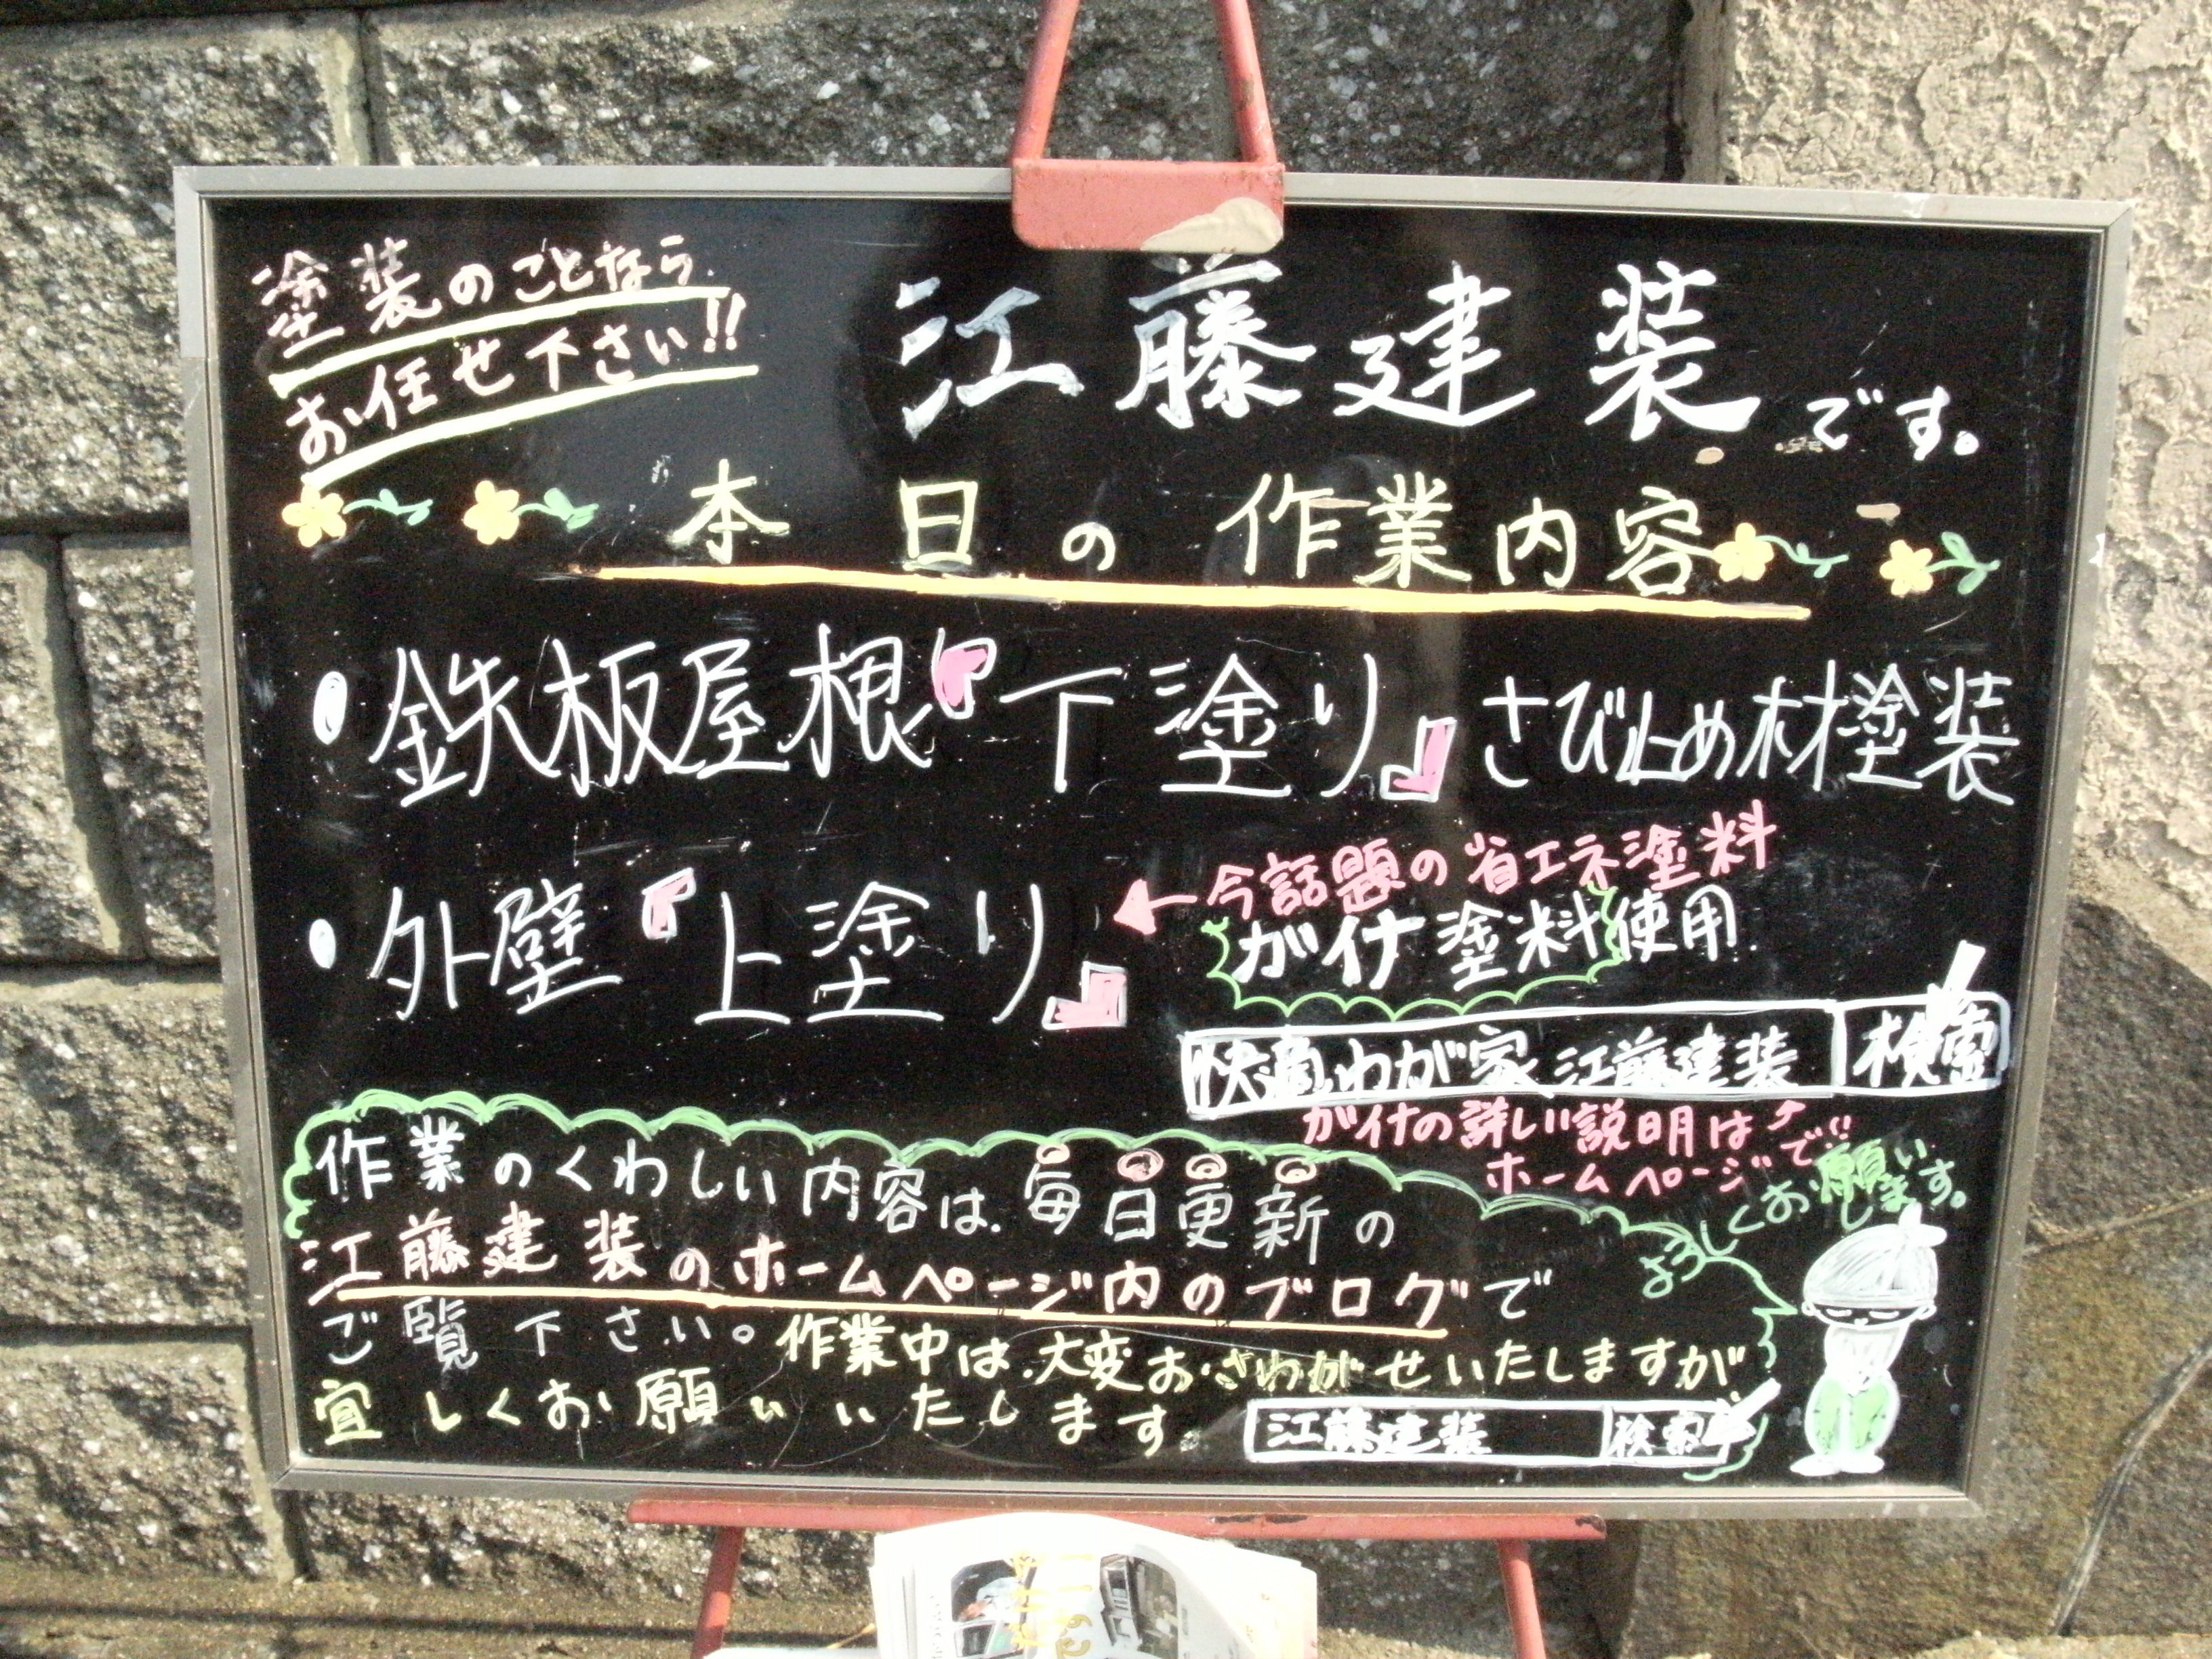 塗装のことなら
お任せ下さい!!
江藤建装です。
本日の作業内容
・鉄板屋根『下塗り』さび止め材塗装
・外壁『上塗り』←今話題の省エネ塗料
ガイナ塗料使用
快適わが家 江藤建装 検索
ガイナの詳しい説明は
ホームページで!!
作業のくわしい内容は、毎日更新の
江藤建装のホームページ内のブログで
ご覧下さい。作業中は、大変おさわがせいたしますが
宜しくお願いいたします。
江藤建装 検索
よろしくお願いします。